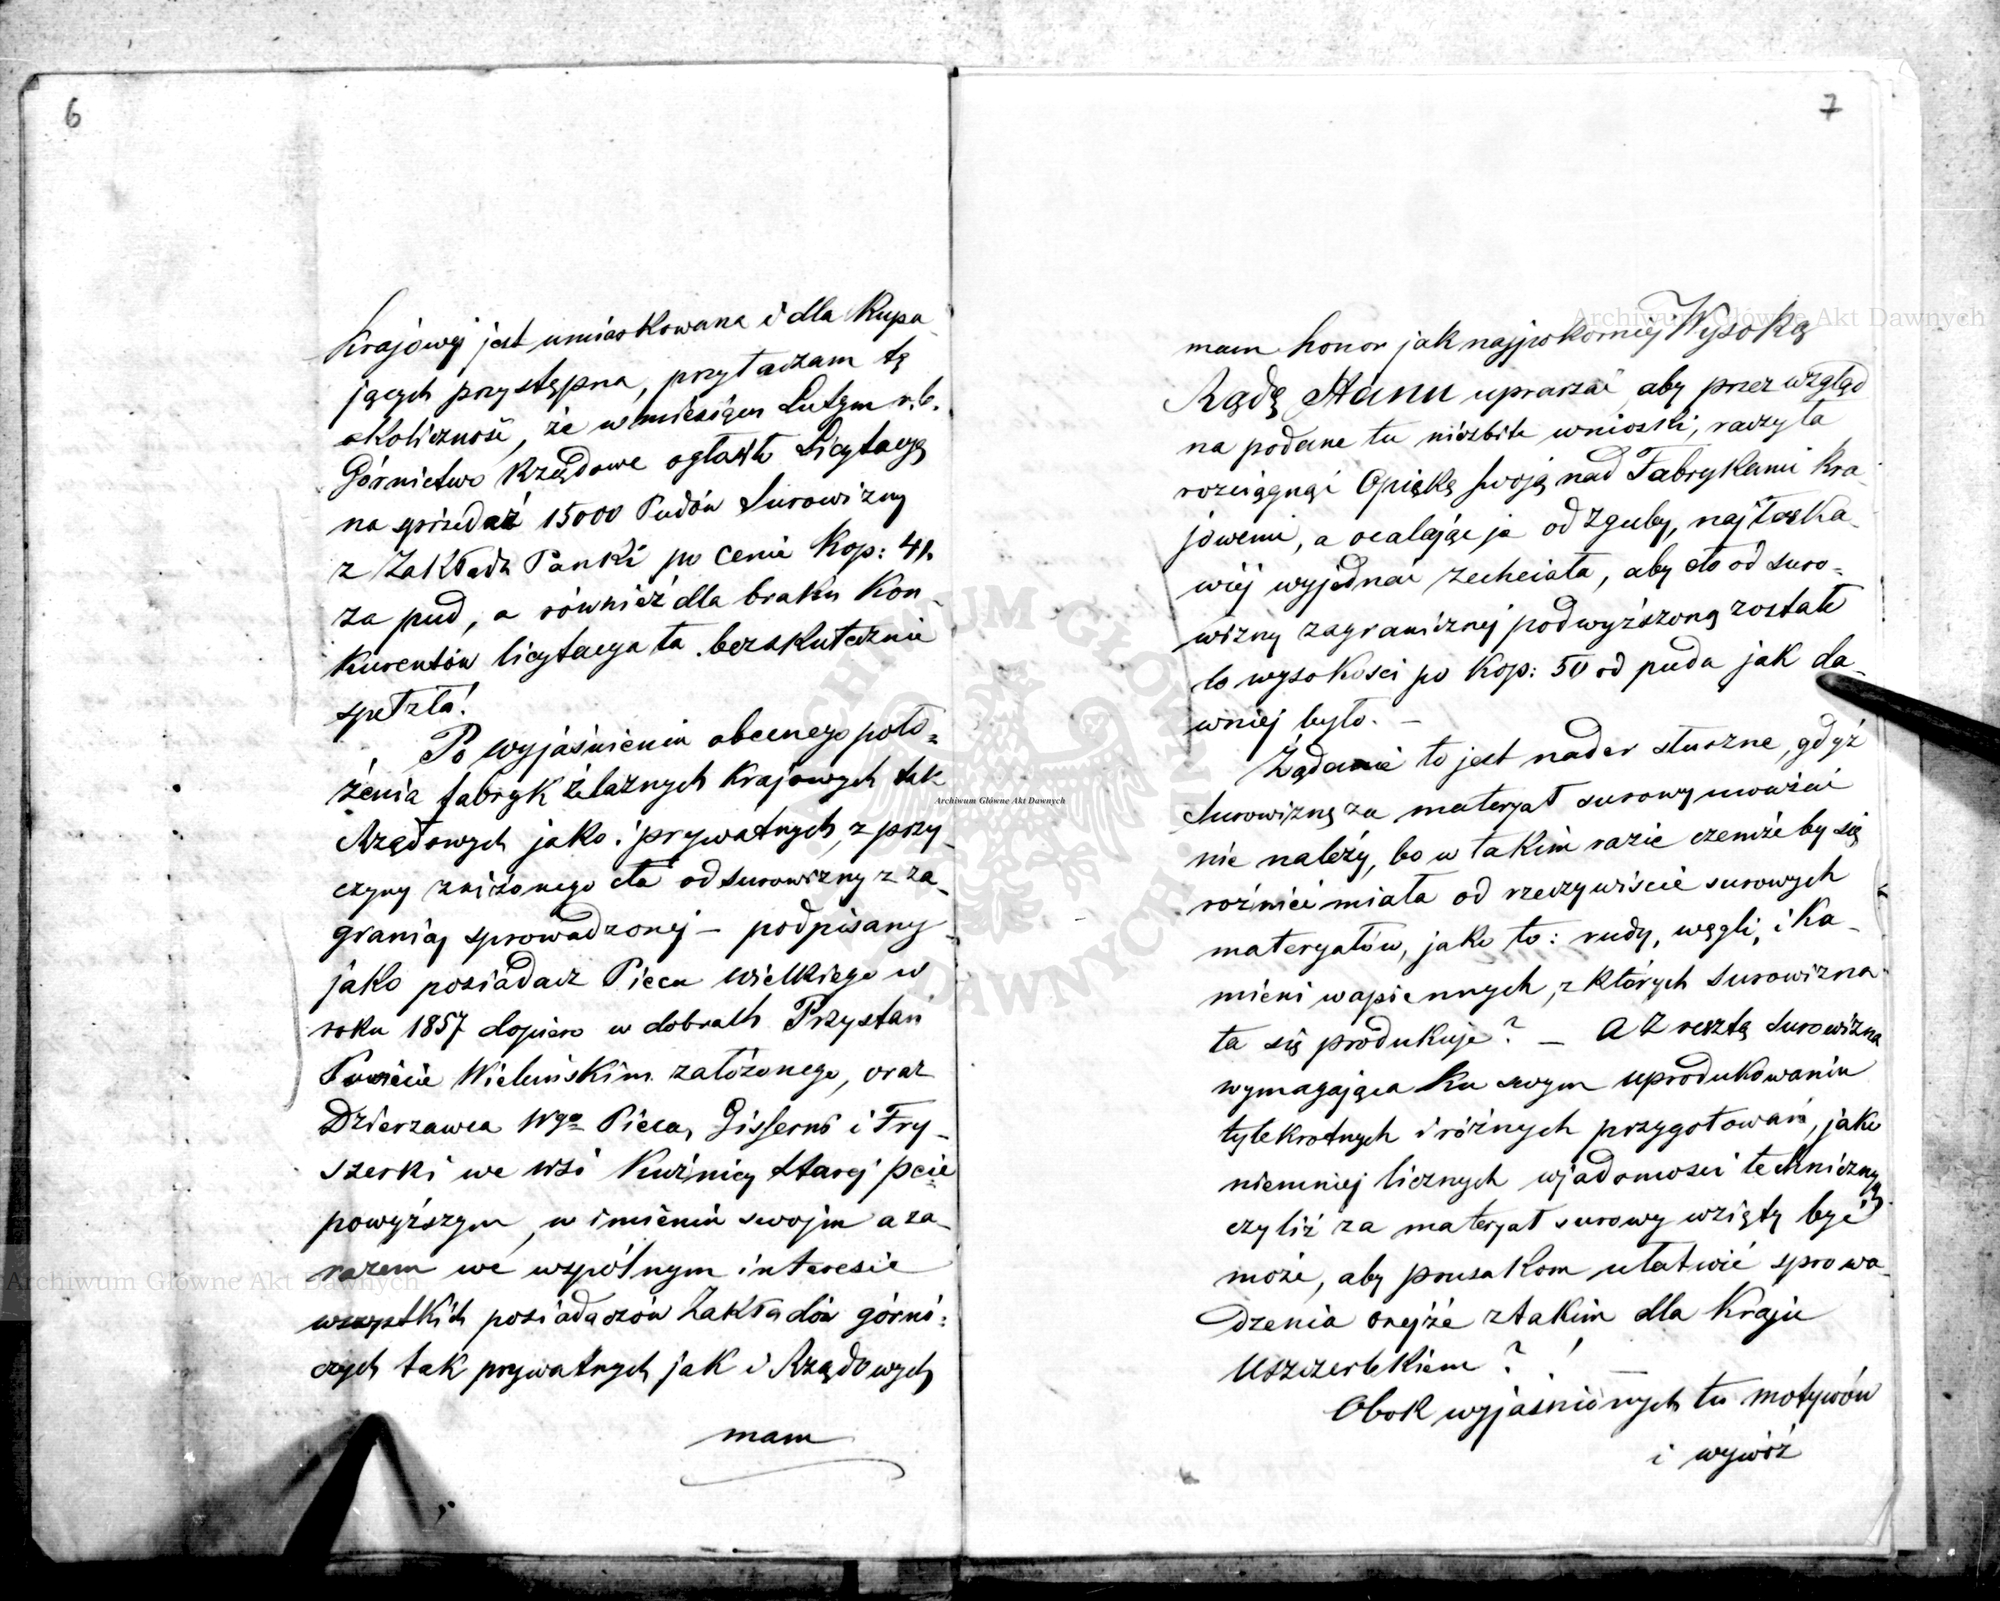 6
Krajowej jest umiarkowana i dla kupu-
jących przystępna, przytaczam tę
okoliczność, że w miesiącu Lutym r. b.
Górnictwo Rządowe ogłosiło Licytacyą
na sprzedaż 15000 Pudów Surowizny
z Zakładu Panki po cenie Kop: 41
za pud, a również dla braku Kon-
kurentów licytacya ta bezskutecznie
spełzła!
Po wyjaśnieniu obecnego poło=
żenia fabryk żelaznych Krajowych tak
Rządowych jako i prywatnych, z przy-
czyny zniżonego cła od surowizny z za-
granicy sprowadzonej – podpisany
jako posiadacz Pieca wielkiego w
roku 1857 dopiero w dobrach Przystań
Powiecie Wieluńskim założonego, oraz
Dzierżawca Wgo Pieca, Gisserni i Fry-
szerki we wsi Kuźnicy Starej pcie
powyższym, w imieniu swojm a za-
razem we wspólnym interesie
wszystkich posiadaczów Zakładów górni=
czych tak prywatnych jak i Rządowych
mam
7
mam honor jak najpokorniej Wysoką
Radę Stanu upraszać aby przez wzgląd
na podane tu niezbite wnioski, raczyła
rozciągnąć Opiekę swoją nad Fabrykami Kra-
jowemi, a ocalając je od zguby, najłaska-
wiej wyjednać zechciała, aby cło od suro=
wizny zagranicznej podwyższoną zostało
do wysokości po Kop: 50 od puda jak da-
wniej było. –
Żądanie to jest nader słuszne, gdyż
Surowiznę za materyał surowy uważać
nie należy, bo w takim razie czemże by się
różnić miała od rzeczywiście surowych
materyałów, jako to: rudy, węgli, i ka-
mieni wapiennych, z których Surowizna
ta się produkuje? – A zresztą Surowizna
wymagająca ku swym uprodukowaniu
tylekrotnych i różnych przygotowań, jako
niemniej licznych wjadomości technicznych
czyliż za materyał surowy wzięty być
może, aby prusakom ułatwić sprowa-
dzenia onejże z takim dla Kraju
Uszczerbkiem? ! –
Obok wyjaśnionych tu motywów
i wywóż
Archiwum Główne Akt Dawnych
Archiwum Główne Akt Dawnych
Archiwum Główne Akt Dawnych
ARCHIWUM GŁÓWNE AKT DAWNYCH